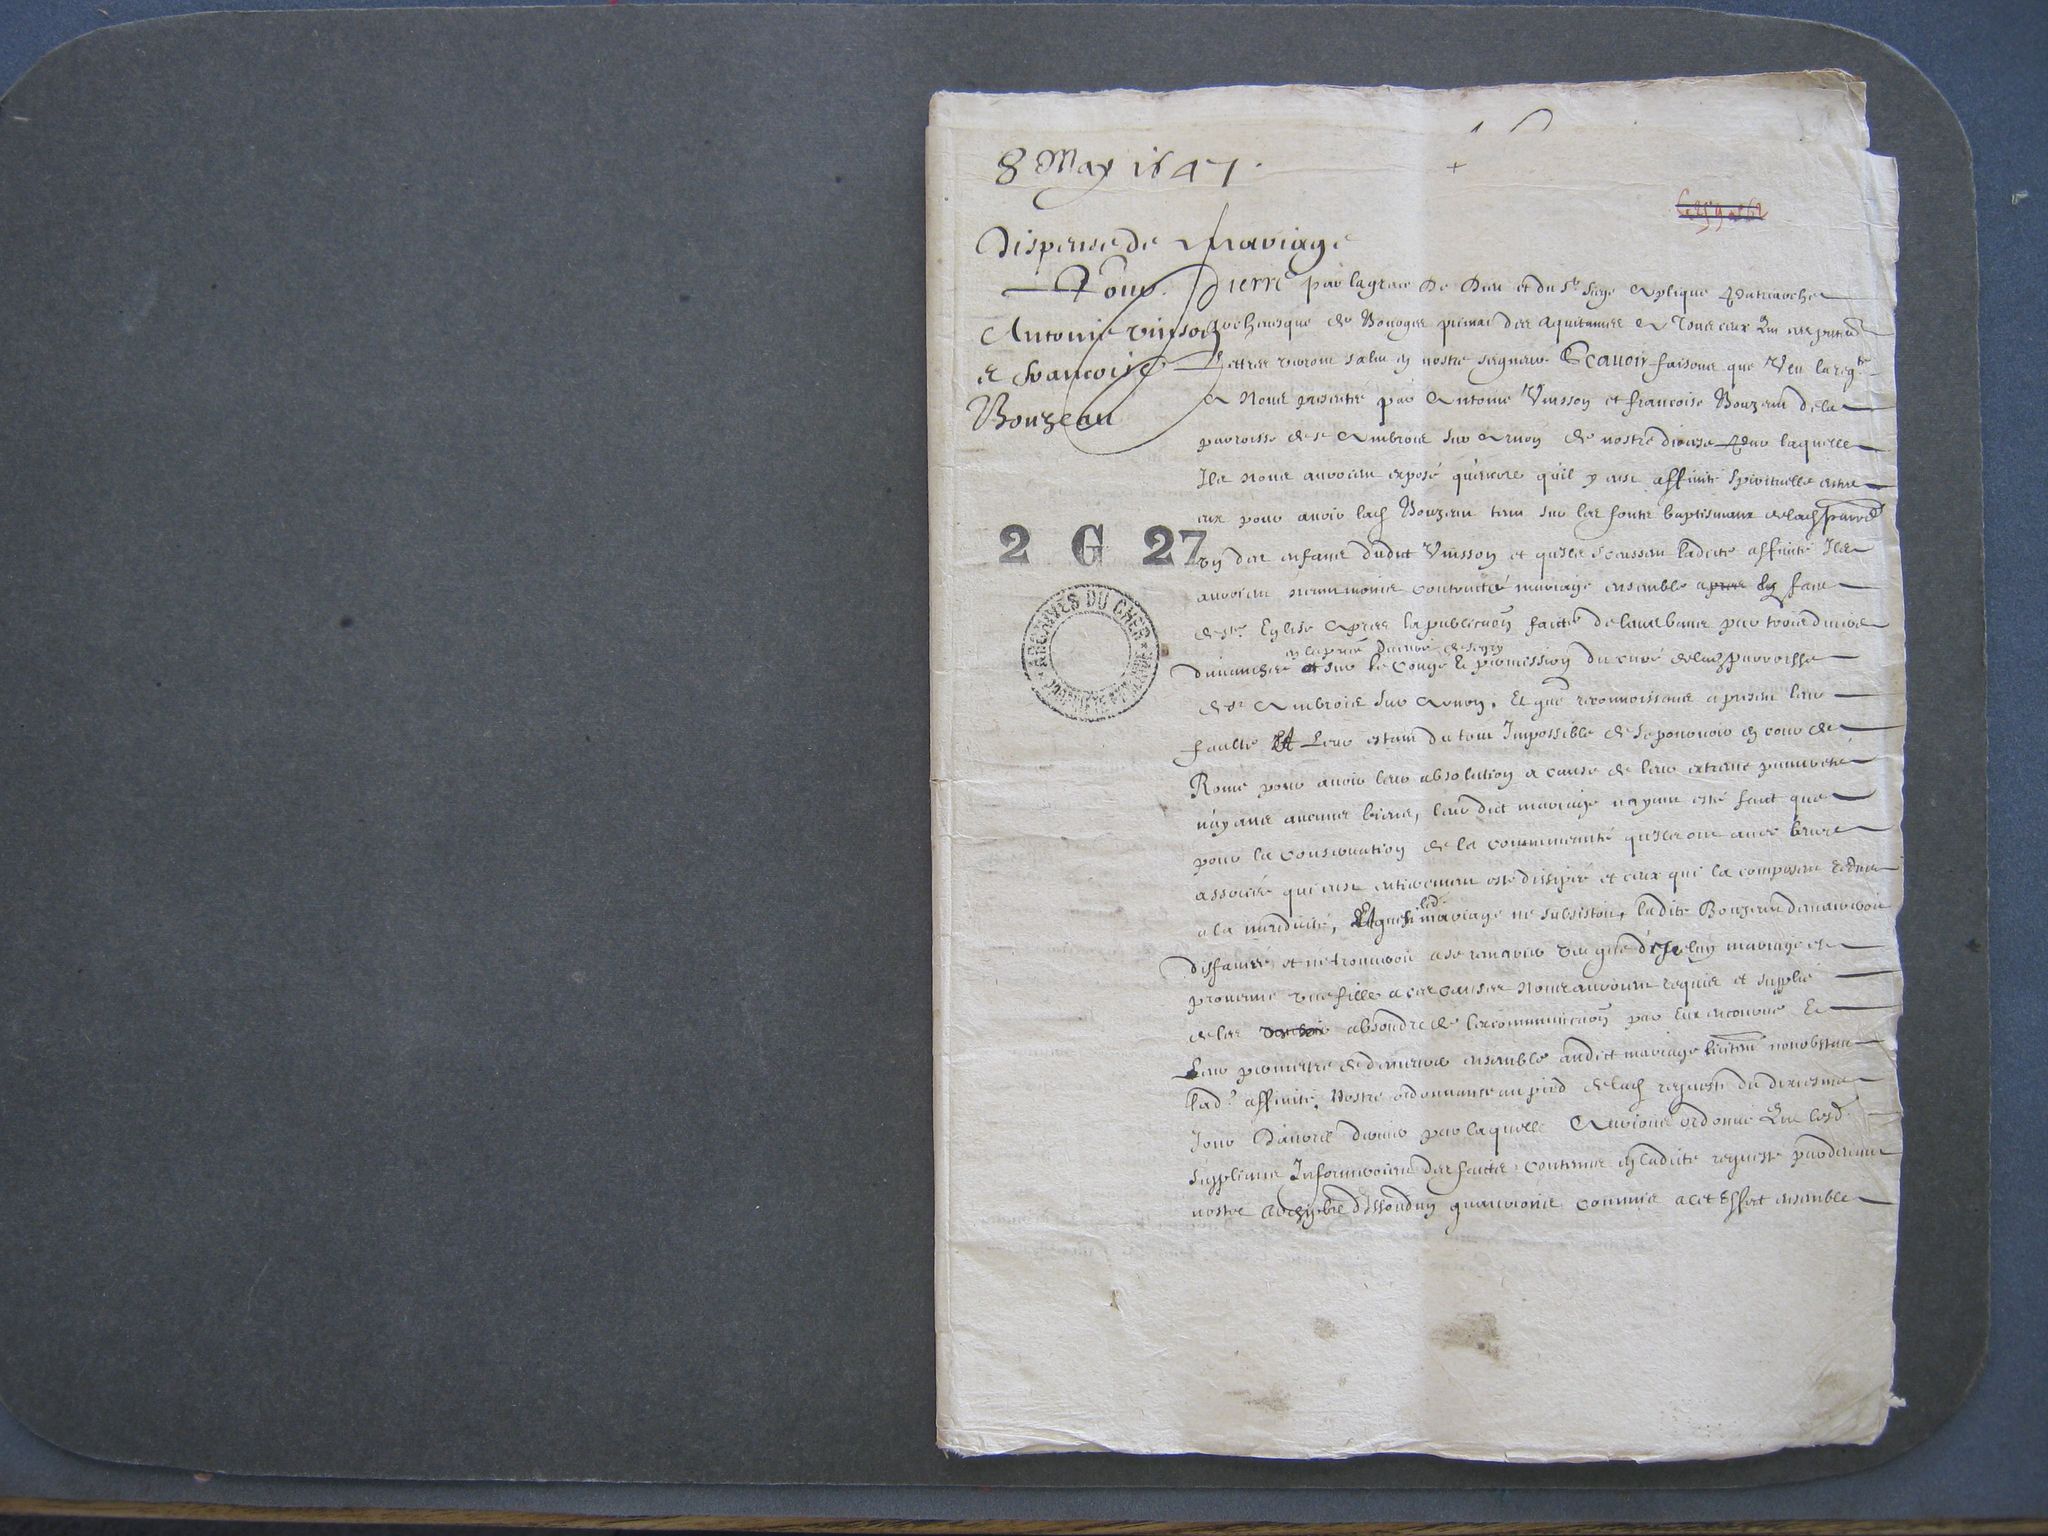 8 May 1647.
Dispense de Mariage
Pour
Antoine Vinson
et Francoise
Bouzeau
2 G 27
ARCHIVES DU CHER
Pierre par la grace de Dieu et du St Siege Aplique Patriarche
Archeuesque de Bourges primat des Aquitaines A Tous ceux Qui ces pntes
Lettres verront salut en nostre seigneur Scauoir faisons que Veu la reqte
A Nous presentée par Antoine Vinsson et francoise Bouzeau de la
parroisse de st Ambroix sur Arnon de nostre diocese Par laquelle
Ils Nous auroient exposé qu'encore qu'il y eust affinité Spirituelle entre
eux pour auoir lad Bouzeau tenu sur les fonts baptismaux de lad parre
vn des enfans dudict Vinsson et qu'ils sceussent ladicte affinité Ils
auroient neanmoings contracté mariage ensemble apres en face
de ste Eglise Apres la publicaon faicte de leurs bans par trois diuers
dimanches et sur le Congé et permission du curé de lad parroisse
de st Ambroix sur Arnon. Et que reconnoissans a present leur
faulte Et Leur estant du tout Impossible de se pouruoir en cour de
Rome pour auoir leur absolution a cause de leur extreme pauureté
n'ayans aucuns biens, leur dict mariage n'ayant esté faict que
pour la conseruation de la communeauté qu'ils ont auec leurs
associés qui eust entierement esté dissipée et ceux qui la composent reduits
a la mendicité, Et que si led mariage ne subsistoit, ladite Bouzeau demeureroit
diffamée et ne trouueroit a se remarier veu que d'Iceluy mariage est
prouenue vne fille a ces causes Nous auroient requis et supplié
de les absoudre de lexcommunicaon par Eux encourue Et
Leur permettre de demeurer ensemble audict mariage nonobstant
lad. affinité, Nostre ordonnance au pied de lad requeste du dixiesme
Jour d'auril dernier par laquelle Aurions ordonné Que lesd
supplians Informeroient des faicts contenus en ladicte requeste pardeuant
nostre Archiptre d'Issoudun qu'aurions commis a cet Effect ensemble